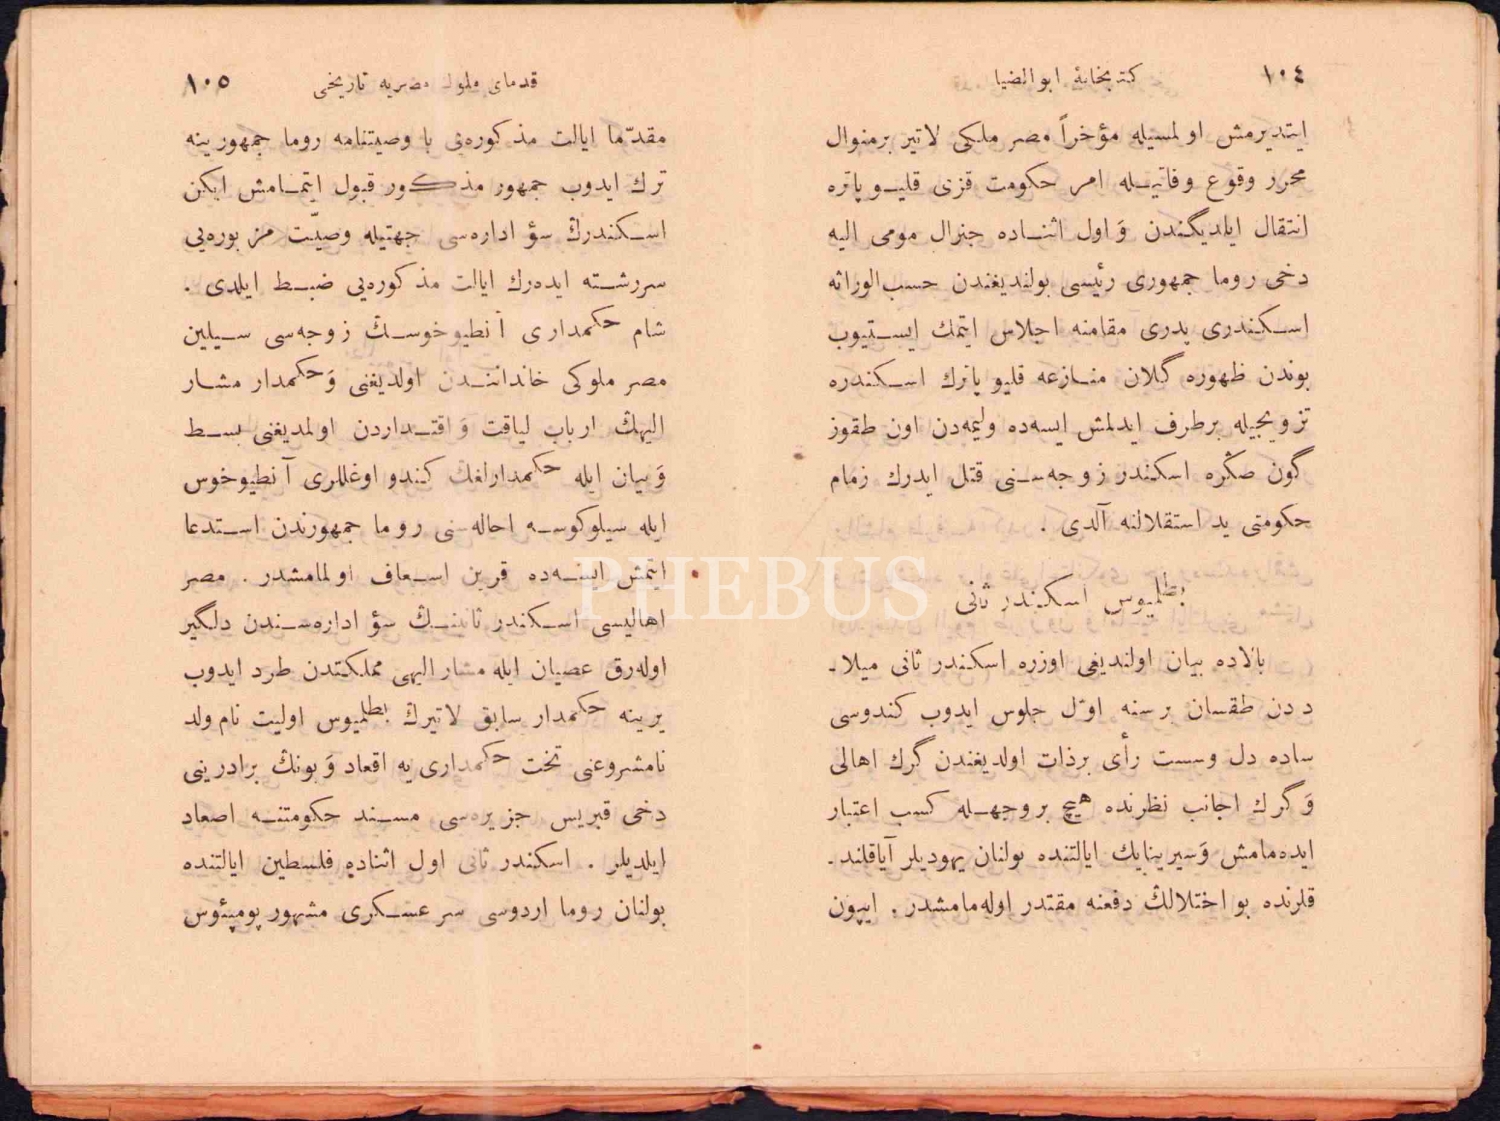 ١٠٤
كتبخانۀ ابوالضيا
ايتديرمش اولمسيله مؤخراً مصر ملكى لاتير برمنوال
محرر وقوع وفاتيله امر حكومت قزى قليوپاتره
انتقال ايلديگندن وَ اول اثناده جنرال مومى اليه
دخى روما جمهورى رئيسى بولنديغندن حسب الوراثه
اسكندرى پدرى مقامنه اجلاس ايتمك ايستيوب
بوندن ظهوره گلان منازعه قليوپاترك اسكندره
تزويجيله برطرف ايدلمش ايسه‌ده وليمه‌دن اون طقوز
گون صكره اسكندر زوجه‌سنى قتل ايدرك زمام
حكومتى يد استقلالنه آلدى .
بطلميوس اسكندر ثانى
بالاده بيان اولنديغى اوزره اسكندر ثانى ميلا-
ددن طقسان برسنه اوّل جلوس ايدوب كندوسى
ساده دل وسست رأى برذات اولديغندن گرك اهالى
وَ گرك اجانب نظرنده هيچ بروجهله كسب اعتبار
ايده‌مامش وَ سيرينايك ايالتنده بولنان يهوديلر آياقلند-
قلرنده بو اختلالك دفعنه مقتدر اوله‌مامشدر . اپيون
قدماى ملوك مصريه تاريخى
١٠٥
مقدّما ايالت مذكوره‌يى با وصيتنامه روما جمهورينه
ترك ايدوب جمهور مذكور قبول ايتمامش ايكن
اسكندرڭ سؤ اداره‌سى جهتيله وصيّت مزبوره‌يى
سررشته ايده‌رك ايالت مذكوره‌يى ضبط ايلدى .
شام حكمدارى آنطيوخوسڭ زوجه‌سى سيلين
مصر ملوكى خانداننـدن اولديغنى وَ حكمدار مشار
اليهڭ ارباب لياقت وَ اقتداردن اولمديغنى بسط
وَ بيان ايله حكمدارلغڭ كندو اوغللرى آنطيوخوس
ايله سيلوكوسه احاله‌سنى روما جمهورندن استدعا
ايتمش ايسه‌ده قرين اسعاف اولمامشدر . مصر
اهاليسى اسكندر ثانينڭ سؤ اداره‌سندن دلگير
اوله‌رق عصيان ايله مشار اليهى مملكتدن طرد ايدوب
يرينه حكمدار سابق لاتيرڭ بطلميوس اوليت نام ولد
نامشروعنى تخت حكمدارى يه اقعاد وَ بونڭ برادرينى
دخى قبريس جزيره‌سى مسند حكومتنه اصعاد
ايلديلر . اسكندر ثانى اول اثناده فلسطين ايالتنده
بولنان روما اردوسى سرعسكرى مشهور پومپئوس